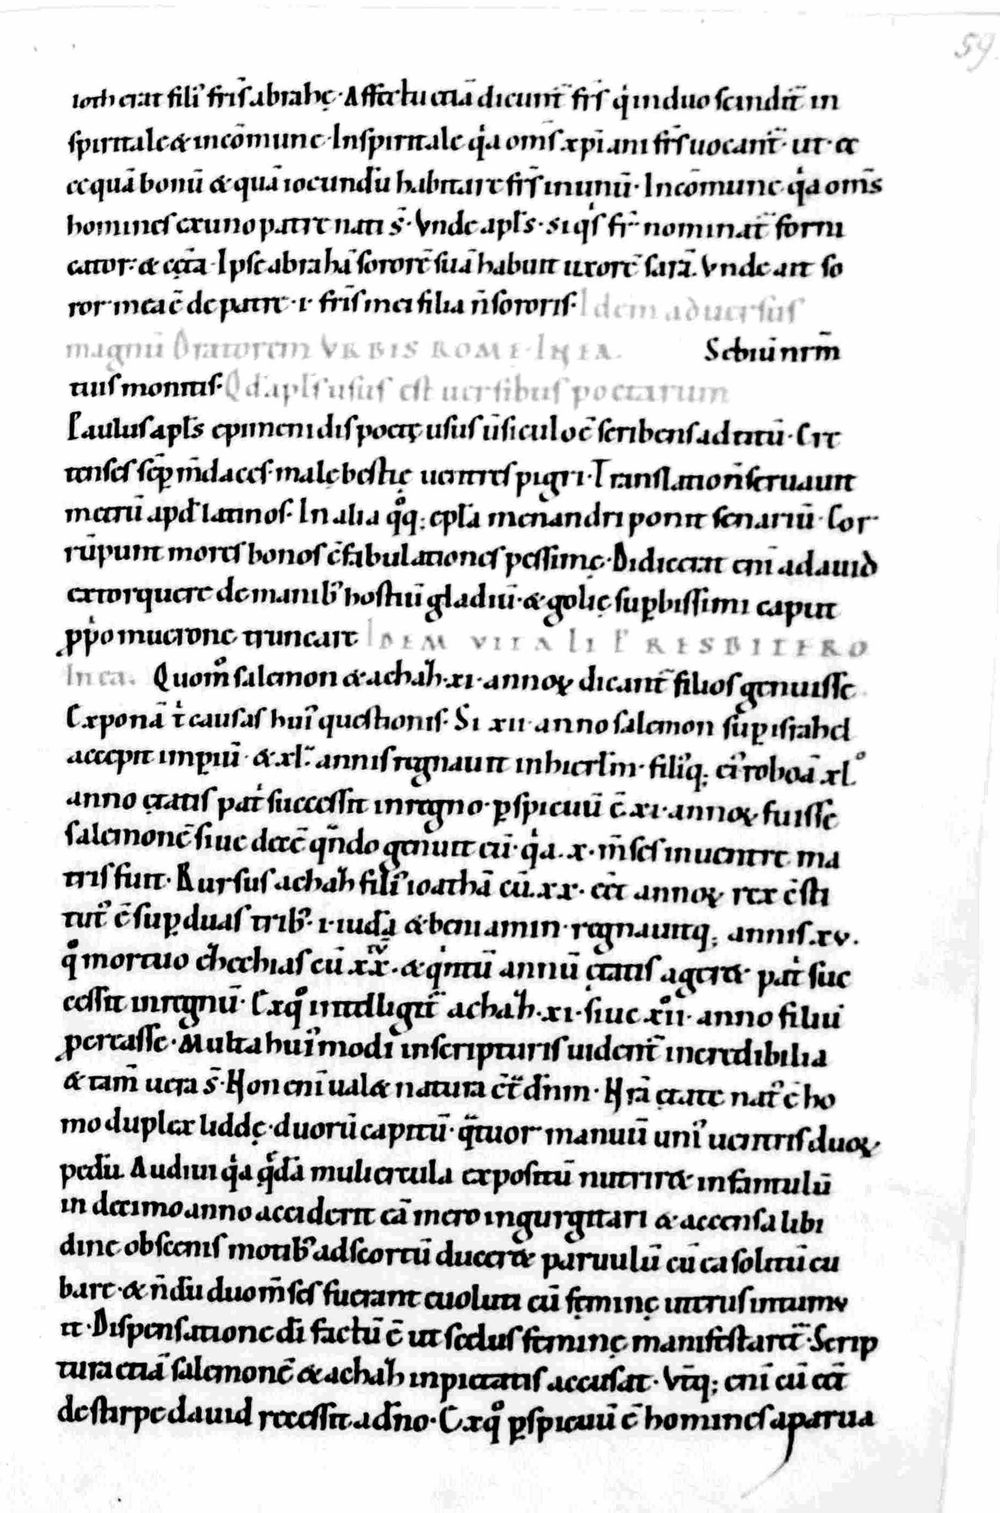 59.
loth erat fili᾽ fr̄is abrahę · Affectu etiā dicunt̄ fr̄s q͛ in duo scindit̄ in
spiritale & incōmune · In spiritale q͛a om̄s xp̄iani fr̄s uocant̄ · ut · ec
ce quā bonū & quā iocundū habitare fr̄s in unū · In cōmune q͛a om̄s
homines ex uno patre nati s̄ · Vnde apl̄s · si q͛s fr̄ nominat̄ forni
cator · & cęt̄a · Ipse abrahā sororē suā habuit uxorē sarā. Vnde ait so
ror mea ē de patre · i · fr̄is mei filia n̄ sororis · Idem aduersus
magnū Oratorem VRBIS ROME · INEA . Sebiū nr̄m
tuis monitis · Qd̄ apl̄s usus est uersibus poetarum
Paulus apl̄s epimenidis poetę usus ūsiculo ē scribens ad titū · Cre
tenses sēp m̄daces · malę bestię uentres pigri · Translatio n̄ seruauit
metrū apd̄ latinos · In alia q°q; epl̄a menandri ponit senariū · Cor
rūpunt mores bonos c̄fabulationes pessimę · Didicerat enī a dauid
extorquere de manib᾽ hostiū gladiū · & golię supbissimi caput
pp͛o mucrone truncare IDEM VITALI PRESBITERO
In ea . Quom° salemon & achaħ · xi · annoꝝ dicant̄ filios genuisse
Exponā t͛ causas hui᾽ questionis · Si xii · anno salemon sup israhel
accepit impiū · & xl · annis regnauit in hierl̄m · fili᾽q; ei᾽ roboā xl°
anno ętatis pat͛ successit in regno · pspicuū ē · xi · annoꝝ fuisse
salemonē siue decē qn̄do genuit eū · q͛a · x · m̄ses in uentre ma
tris fuit · Rursus achaħ fili᾽ ioathā cū · xx · eēt annoꝝ rex c̄sti
tut᾽ ē sup duas trib᾽ · i · iuda & beniamin · regnauitq; annis · xv ·
q° mortuo eħechias cū xx · iv · & q͛ntū annū ętatis ageret pat͛ suc
cessit in regnū · Ex q° intelligit̄ achaħ · xi · siue xii° · anno filiū
peperasse · Multa hui᾽modi in scripturis uident̄ incredibilia
& tam̄ uera s̄ · Non enī ualet natura c̄t̄ dn̄m · Nr̄ā ętate nat᾽ ē ho
mo duplex liddę · duorū capitū · q̄tuor manuū uni᾽ uentris duoꝝ
pedū · Audiui q͛a q͛dā muliercula expositū nutriret infantulū
in decimo anno acciderit eā mero ingurgitari & accensa libi
dine obscenis motib᾽ ad scortū duceret paruulū cū ea solitū cu
bare · & n̄dū duo m̄ses fuerant euoluti cū feminę uterus intumu
it · Dispensatione dī factū ē ut scelus feminę manifestaret̄ · Scrip
tura etiā salemonē & achaħ inpietatis accusat · Vt̄q; enī cū eēt
de stirpe dauid recessit a dn̄o · Ex q° pspicuū ē homines a parua